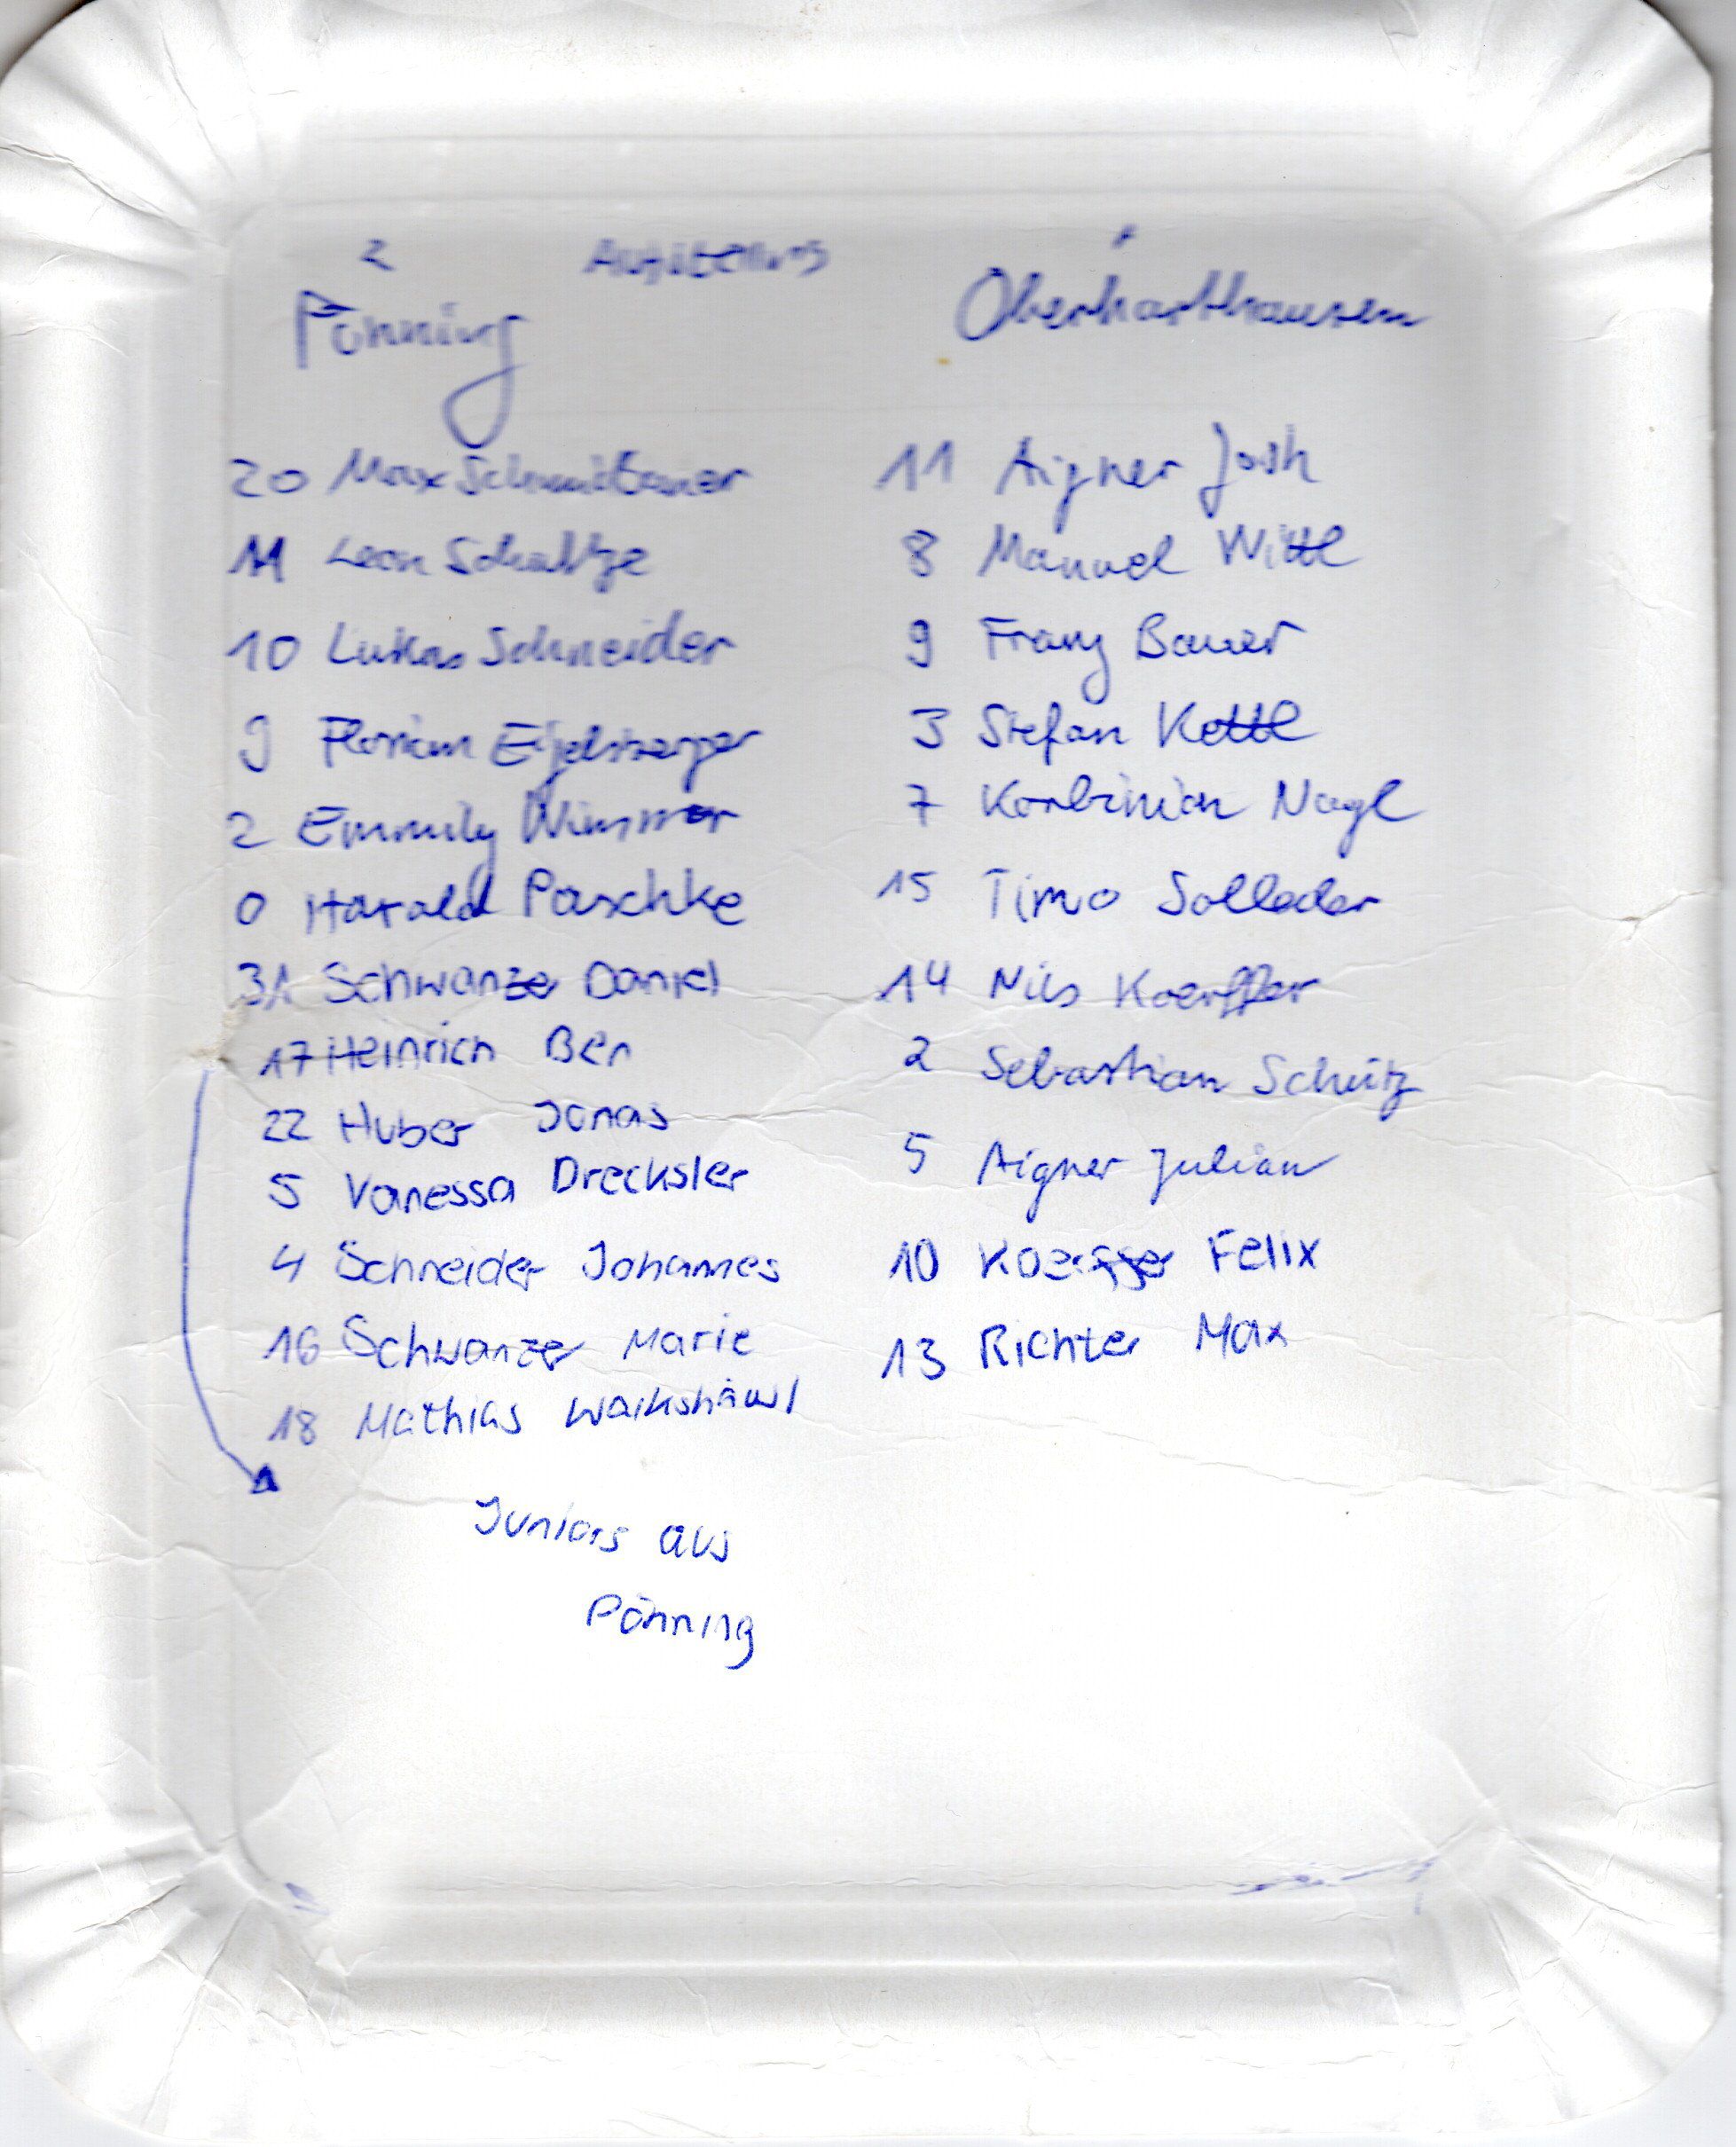 2 Aufstellung
Pönning
Oberharthausen
20 Max Schmidbauer
11 Leon Schultze
10 Lukas Schneider
9 Florian
2 Emmily Wimmer
0 Harald Paschke
31 Schwanzer Daniel
17 Heinrich Ben
22 Huber Jonas
5 Vanessa Drecksler
4 Schneider Johannes
16 Schwanzer Marie
18 Mathias
Juniors aus
Pönning
11 Aigner Josh
8 Manuel Wittl
9 Franz Bauer
3 Stefan Kettl
7 Korbinian Nagl
15 Timo Solleder
14 Nils Koerffer
2 Sebastian Schütz
5 Aigner Julian
10 Koerffer Felix
13 Richter Max